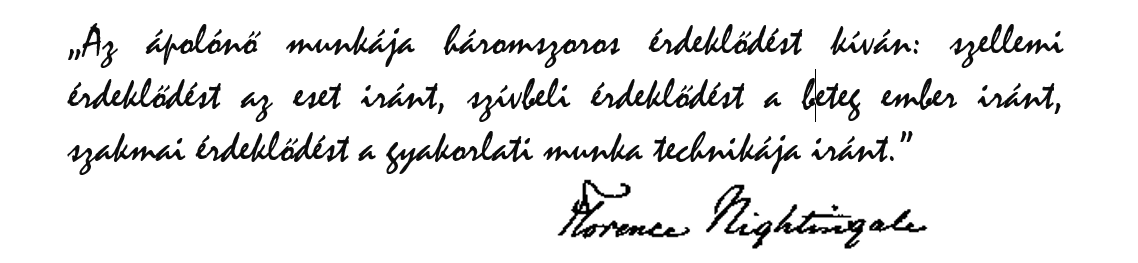 „Az ápolónő munkája háromszoros érdeklődést kíván: szellemi
érdeklődést az eset iránt, szívbeli érdeklődést a beteg ember iránt,
szakmai érdeklődést a gyakorlati munka technikája iránt.”
Florence Nightingale